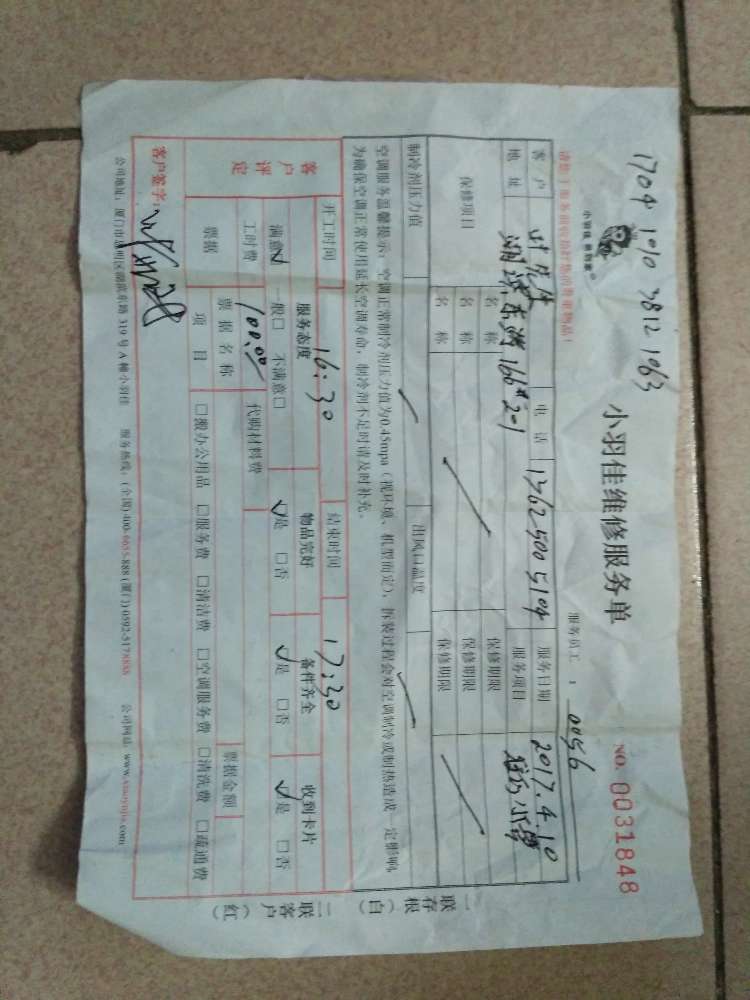 1704 1010 3812 1063
小羽佳 洗到家®
小羽佳维修服务单
NO. 0031848
服务员工 : 0056
客户 电话 13625005104 服务日期 2017.4.10
地址 湖滨东路166#201 服务项目
保修项目 名称 保修期限
名称 保修期限
名称 保修期限
制冷剂压力值 出风口温度
空调服务温馨提示:空调正常制冷剂压力值为0.45mpa(视环境、机型而定),拆装过程会对空调制冷或制热造成一定影响,
为确保空调正常使用延长空调寿命,制冷剂不足时请及时补充。
开工时间 16:30 结束时间 17:30
客户评定 服务态度 物品完好 备件齐全 收到卡片
满意☑ 一般□ 不满意□ ☑是 □否 ☑是 □否 ☑是 □否
工时费 100.00 代购材料费
票据 票据名称 票据金额
项目 □搬办公用品 □服务费 □清洁费 □空调服务费 □清洗费 □疏通费
客户签字:
公司地址:厦门市思明区湖滨东路319号A幢小羽佳 服务热线:(全国)400-6655-888 (厦门)0592-5178888 公司网站:www.xiaoyujia.com
一联存根(白)
二联客户(红)